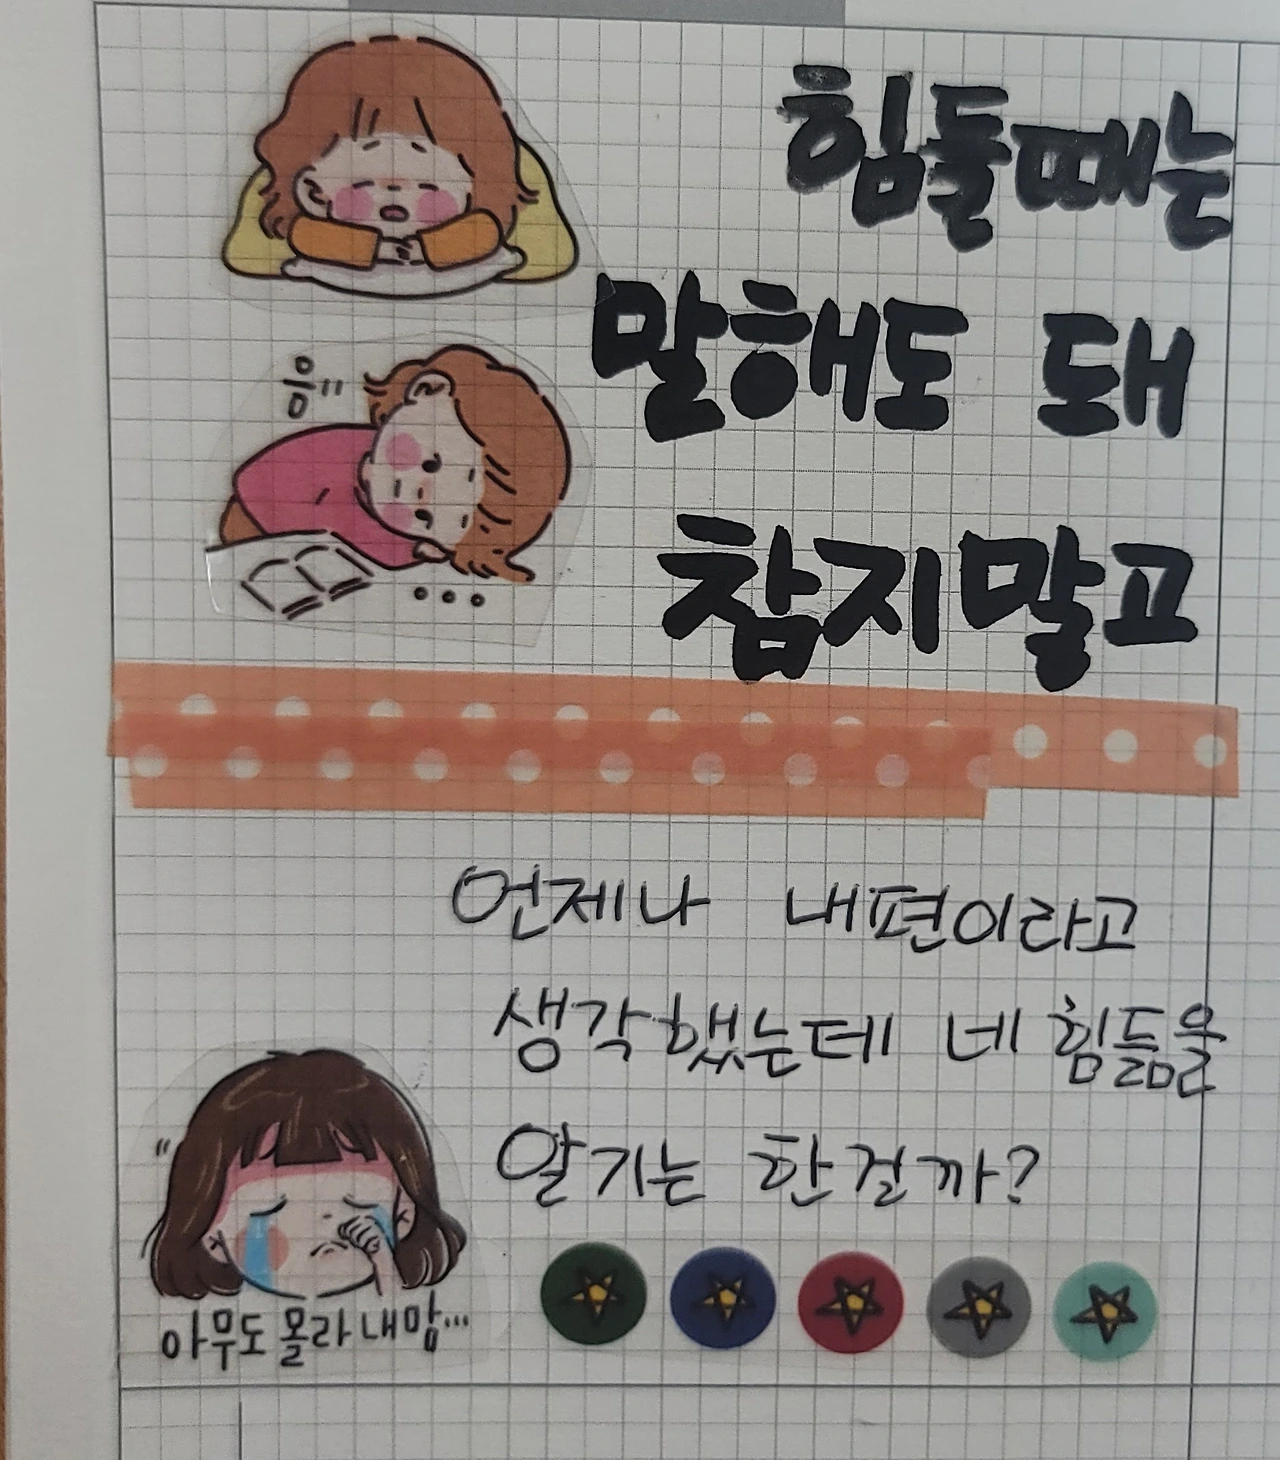 힘들때는
말해도 돼
음"
참지말고
언제나 내편이라고
생각했는데 네 힘듦을
알기는 한걸까?
아무도 몰라 내맘...